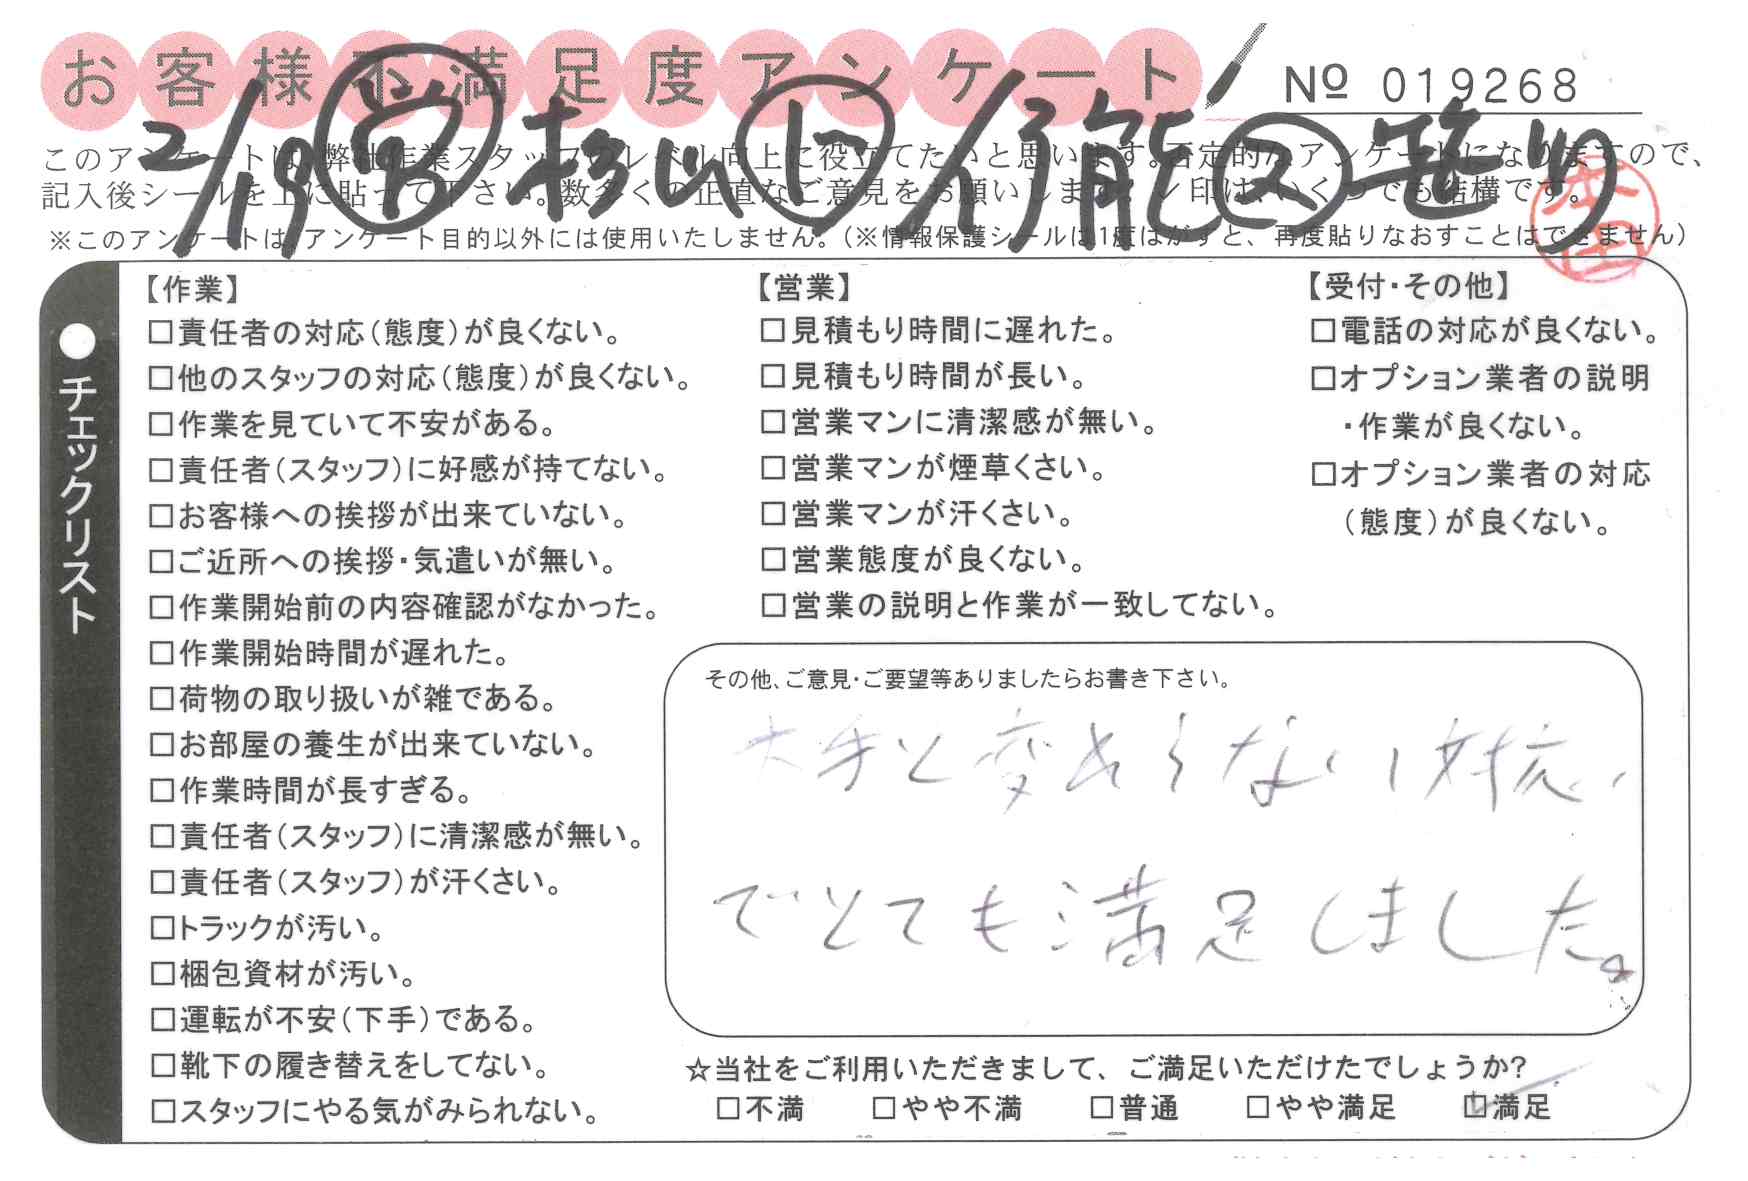 お客様不満足度アンケート № 019268
2/19 杉山 行能 笹the
このアンケートは、弊社作業スタッフのレベル向上に役立てたいと思います。否定的なアンケートになりますので、
記入後シールを上に貼って下さい。数多くの正直なご意見をお願いします!レ印は、いくつでも結構です。
※このアンケートは、アンケート目的以外には使用いたしません。(※情報保護シールは1度はがすと、再度貼りなおすことはできません)
本田
●チェックリスト
【作業】
□責任者の対応(態度)が良くない。
□他のスタッフの対応(態度)が良くない。
□作業を見ていて不安がある。
□責任者(スタッフ)に好感が持てない。
□お客様への挨拶が出来ていない。
□ご近所への挨拶・気遣いが無い。
□作業開始前の内容確認がなかった。
□作業開始時間が遅れた。
□荷物の取り扱いが雑である。
□お部屋の養生が出来ていない。
□作業時間が長すぎる。
□責任者(スタッフ)に清潔感が無い。
□責任者(スタッフ)が汗くさい。
□トラックが汚い。
□梱包資材が汚い。
□運転が不安(下手)である。
□靴下の履き替えをしてない。
□スタッフにやる気がみられない。
【営業】
□見積もり時間に遅れた。
□見積もり時間が長い。
□営業マンに清潔感が無い。
□営業マンが煙草くさい。
□営業マンが汗くさい。
□営業態度が良くない。
□営業の説明と作業が一致してない。
【受付・その他】
□電話の対応が良くない。
□オプション業者の説明
・作業が良くない。
□オプション業者の対応
(態度)が良くない。
その他、ご意見・ご要望等ありましたらお書き下さい。
大手と変わらない対応
でとても満足しました。
☆当社をご利用いただきまして、ご満足いただけたでしょうか?
□不満 □やや不満 □普通 □やや満足 ☑満足